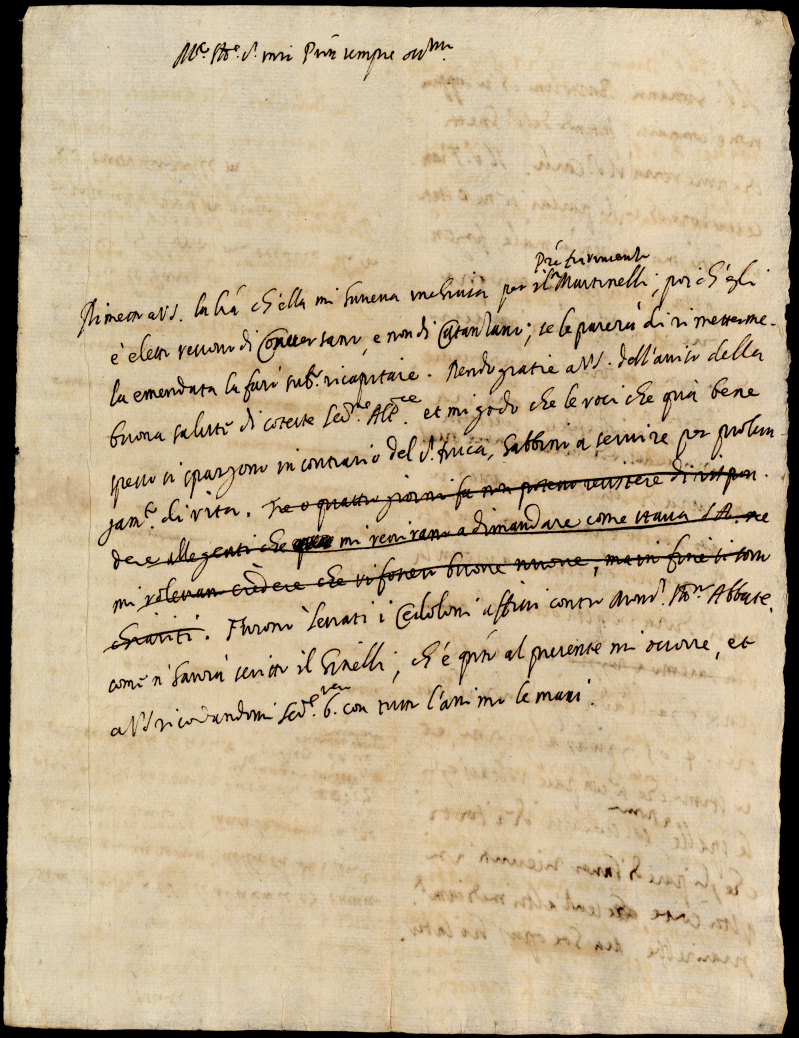 Ill.re Sig.re S.r mio Pron sempre oss.mo
Pre Francesco
Rimetto a VS. la lrã ch'ella mi haveva inchiusa per il Martinelli, poi ch'egli
è eletto vescovo di Conversano, e non di Catanzano; se le parerà di rimetterme-
la emendata la farò sub.o ricapitare. Rendo gratie a VS. dell'aviso della
buona salute di coteste Ser.me Alt.ze et mi godo che le voci che quà bene
spesso si spargono in contrario del S.r Duca, habbino a servire per prolun-
gam.to di vita. Tre o quattro giorni fa non potevo resistere di rispon-
dere alle genti che mi venivano a dimandare come stava S.A. ne
mi volevan credere che vi fossero buone nuove, ma in fine si sono
chiariti. Furono levati i Cedoloni affissi contro Mons.r Abbate,
come n'havrà scritto il Ginelli, ch'è q.to al presente mi occorre, et
a VS ricordandomi ser.re b. con tutto l'animo le mani.